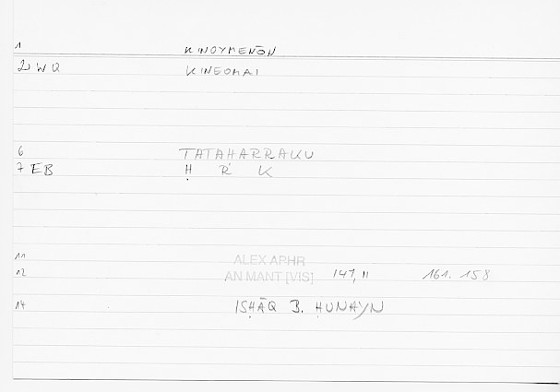 1 KINOYMENŌN
2 WQ KINEOMAI
6 TATAHARRAKU
7 EB Ḥ R K
11 ALEX APHR
12 AN MANT [VIS] 147, 11 161. 158
14 ISḤĀQ B. ḤUNAYN